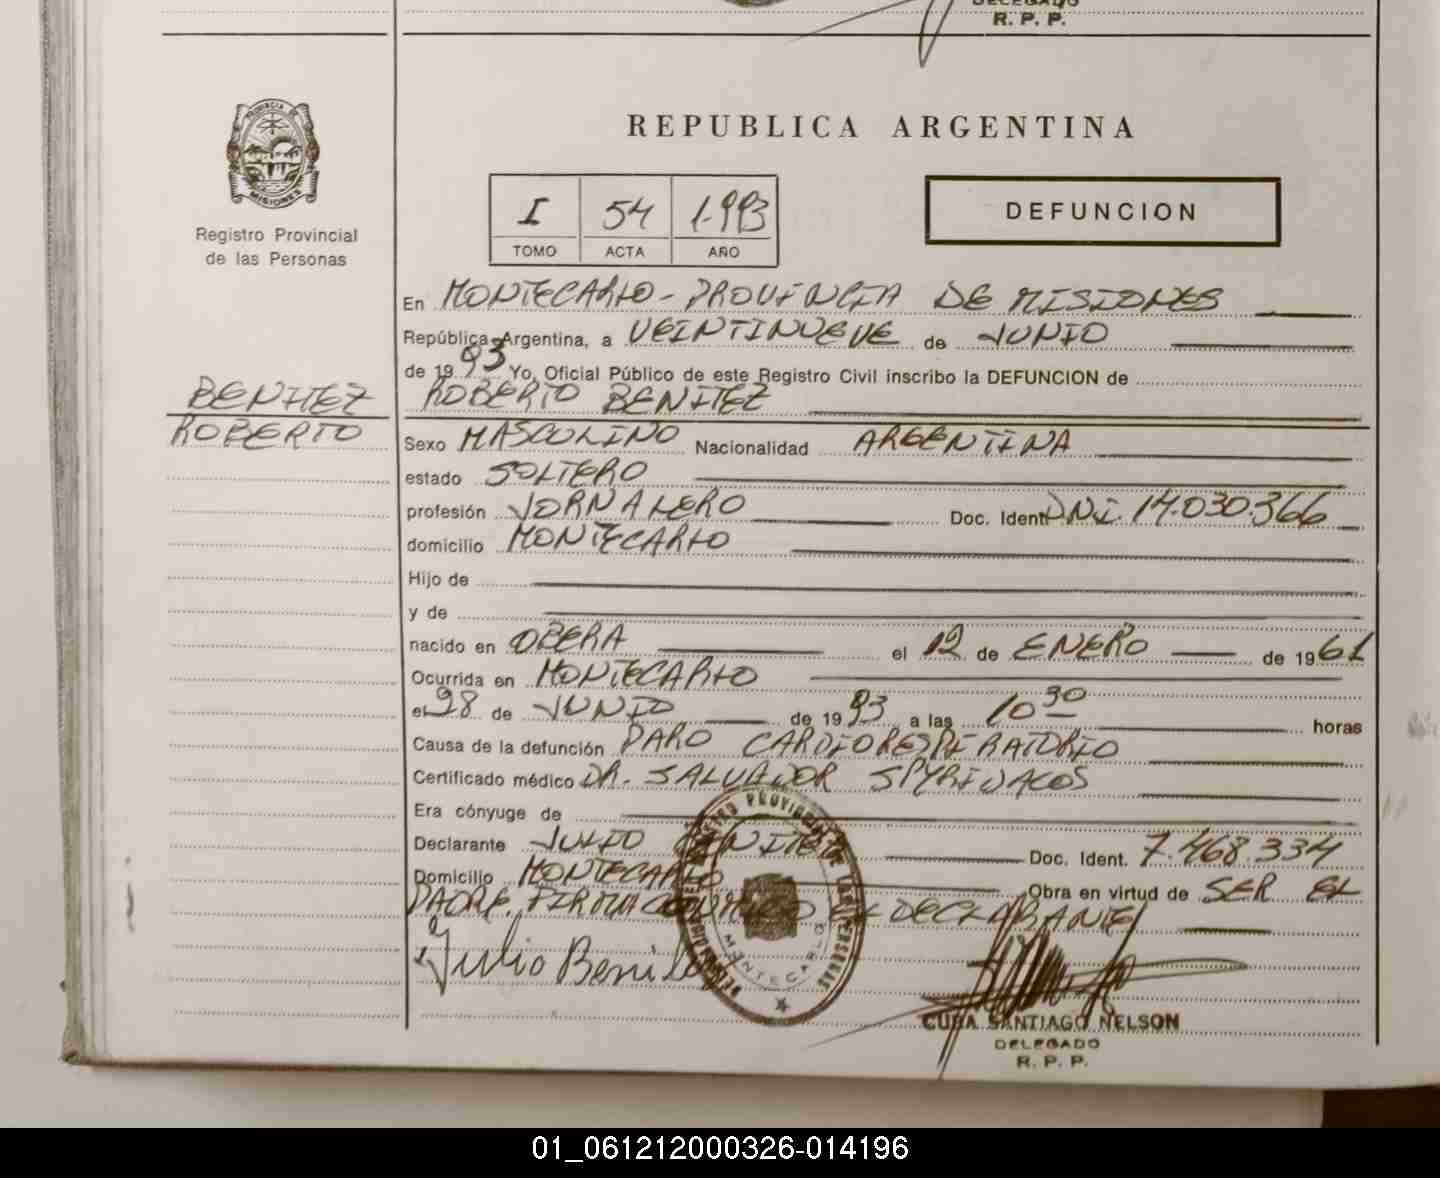 DELEGADO
R. P. P.
PROVINCIA DE
MISIONES
Registro Provincial
de las Personas
REPUBLICA ARGENTINA
I 54 1.993
TOMO ACTA AÑO
DEFUNCION
En MONTECARLO - PROVINCIA DE MISIONES
República Argentina, a VEINTINUEVE de JUNIO
de 1993 Yo, Oficial Público de este Registro Civil inscribo la DEFUNCION de
BENITEZ
ROBERTO
ROBERTO BENITEZ
Sexo MASCULINO Nacionalidad ARGENTINA
estado SOLTERO
profesión JORNALERO Doc. Ident. DNI. 14.030.366
domicilio MONTECARLO
Hijo de
y de
nacido en OBERA el 12 de ENERO de 1961
Ocurrida en MONTECARLO
el 28 de JUNIO de 1993 a las 10 30 horas
Causa de la defunción PARO CARDIORESPIRATORIO
Certificado médico DR. SALVADOR
Era cónyuge de
Declarante JULIO BENITEZ Doc. Ident. 7.468.334
Domicilio MONTECARLO Obra en virtud de SER EL
PADRE. FIRMA EL DECLARANTE
Julio Benitez
REGISTRO PROVINCIAL DE LAS PERSONAS
MONTECARLO
CUBA SANTIAGO NELSON
DELEGADO
R. P. P.
01_061212000326-014196